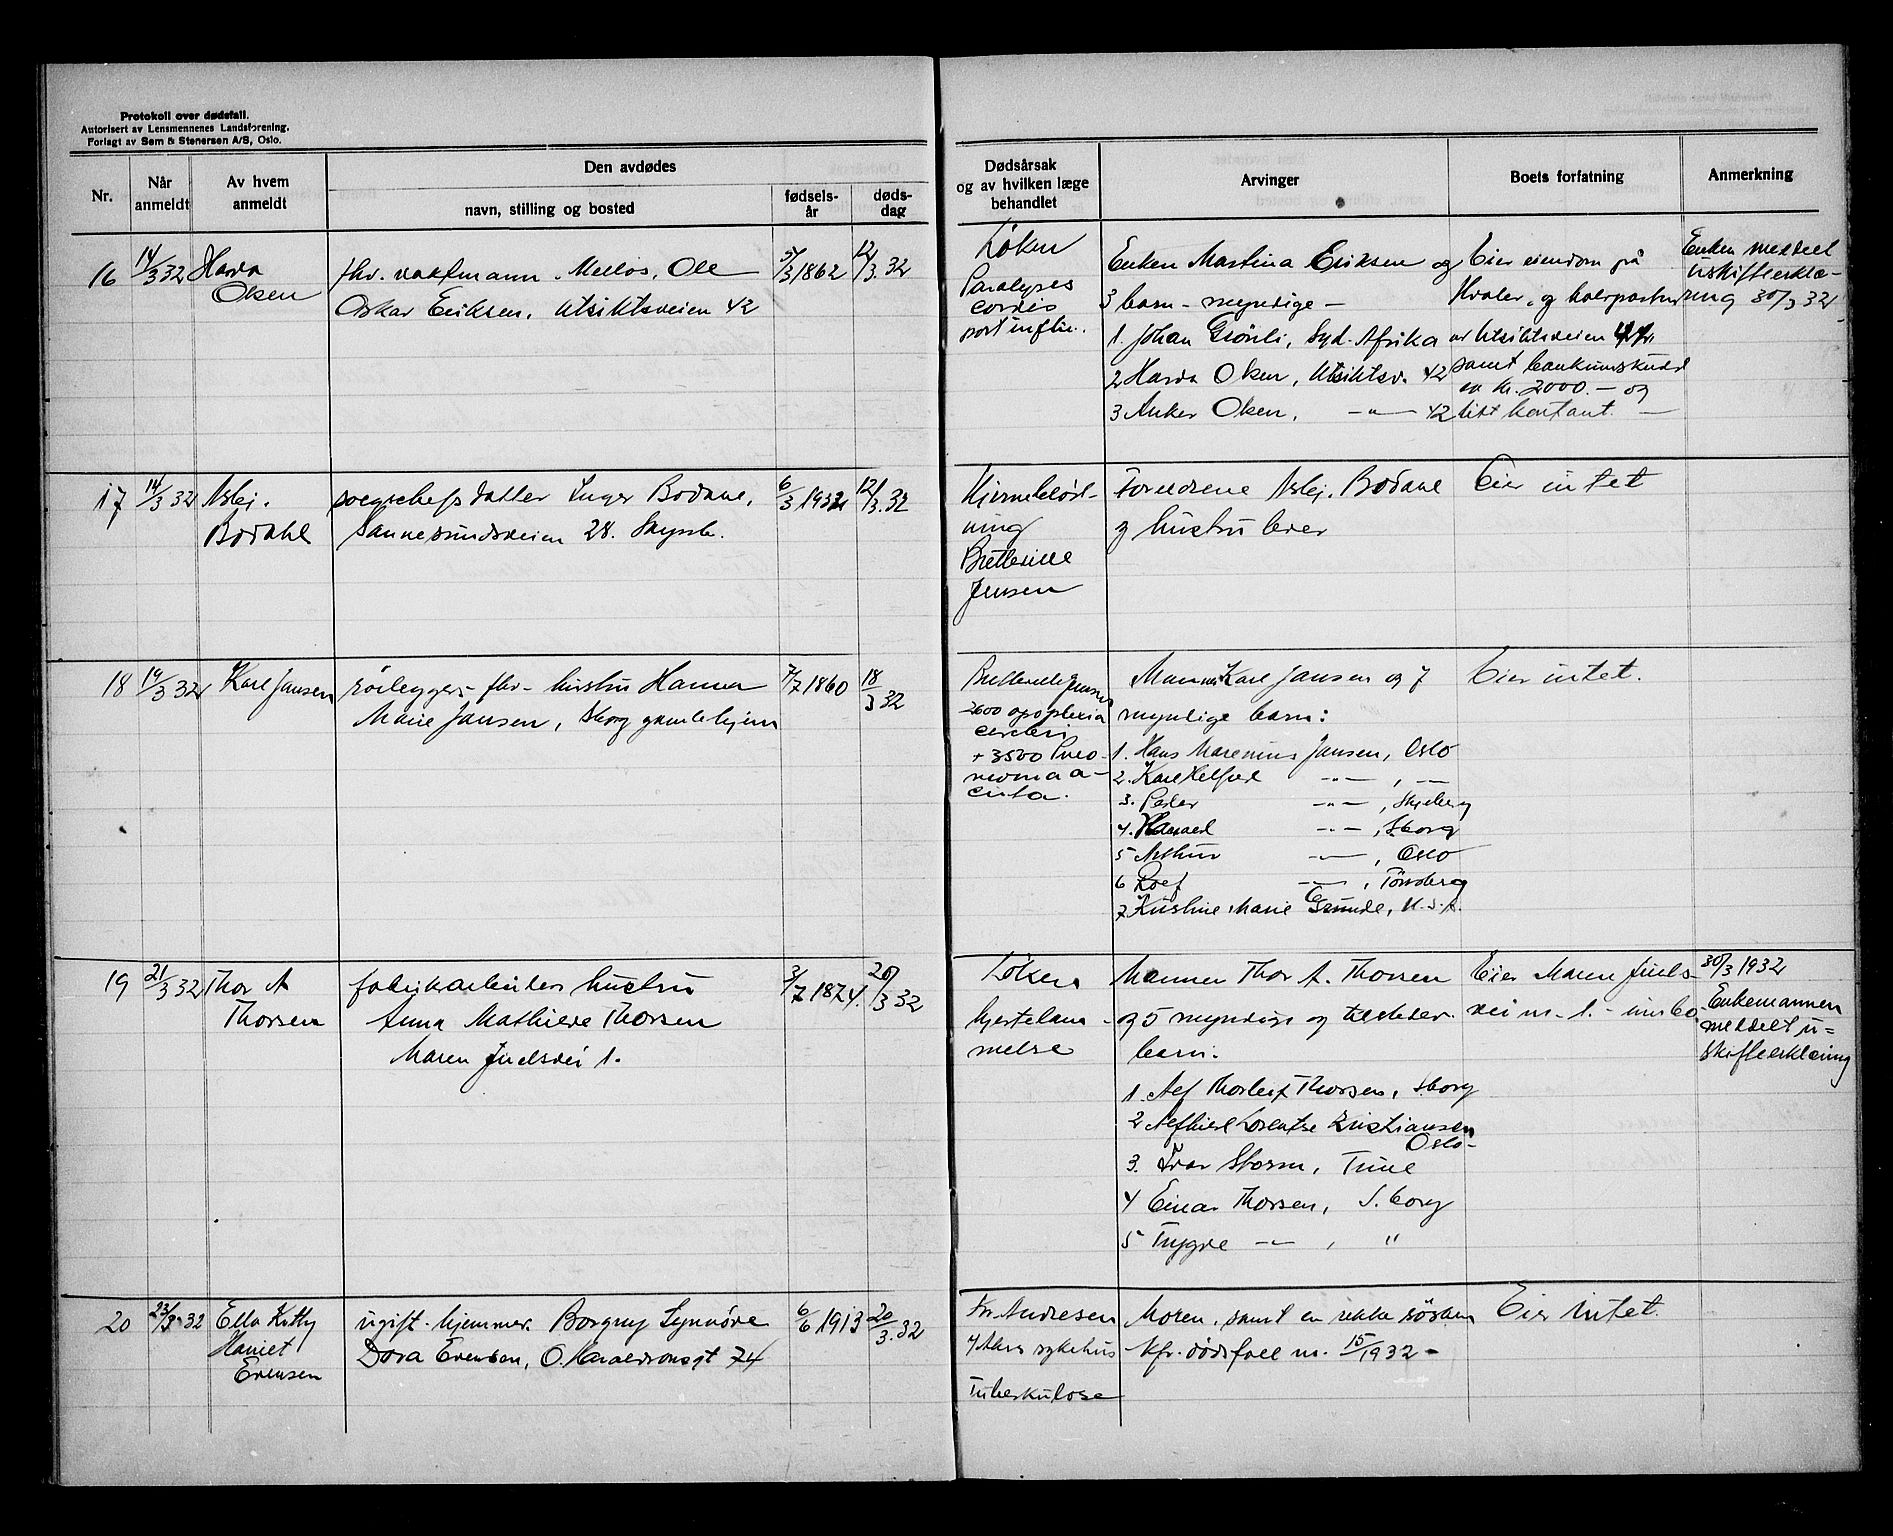 Protokoll over dødsfall.
Autorisert av Lensmennenes Landsforening.
Forlagt av Sem & Stenersen A/S, Oslo.
Nr.
Når anmeldt
Av hvem anmeldt
Den avdødes
navn, stilling og bosted
fødsels-år
døds-dag
Dødsårsak
og av hvilken læge
behandlet
Arvinger
Boets forfatning
Anmerkning
16 14/3 32
Olsen
fhv. vaktmann Ole
Oskar Eriksen, Utsiktsveien 42
5/3 1862
12/3. 32
Løken
Paralyses
cordis
post influ.
Enken Martina Eriksen og
3 barn - myndige -
1. Johan Grönli, Syd. Afrika
2 Olsen, Utsiktsv. 42
3 Anker Olsen, -"- 42
Eier eiendom på
Hvaler, og halvparten
av Utsiktsveien
samt bankinnskudd
en kr. 2000.- og
litt kontant. -
Enken meddelt
uskifteerklæ-
ring 30/3 32
17 14/3 32
Bodahl
datter Inger Bodahl,
Sannesundsveien 28.
6/3 1932
12/3. 32
Hjerneblød-
ning
Bretteville
Jensen
Foreldrene Bodahl
og hustru lever
Eier intet
18 19/3 32
Karl Jansen
rörlegger- fhv- hustru Hanna
Marie Jansen, Sborg gamlehjem
7/7 1860
18/3 32
Bretteville Jensen
2600 apoplexia
cerebri
+ 3500 Pneu-
monia a-
cuta.
Mannen Karl Jansen og 7
myndige barn:
1. Hans Marenius Jansen, Oslo
2. Karl -"- , -"-
3. Peder -"- , Skjeberg
4. Harald -"- , Sborg
5 Arthur -"- , Oslo
6 Rolf -"- , Tönsberg
7 Kristine Marie U.S.A.
Eier intet.
19 21/3 32
Thor A
Thorsen
fabrikarbeider hustru
Anna Mathilde Thorsen
Maren Juelsvei 1.
3/7 1874.
20/3 32
Løken
hjertelam-
melse
Mannen Thor A. Thorsen
og 5 myndige og
barn.
1. Alf Thorleif Thorsen, Sborg
2 Lorentse Kristiansen
Oslo-
3. Storm, Tune
4 Einar Thorsen, S.borg
5 Trygve -"- , "
Eier Maren Juels-
vei nr. 1. - innbo
30/3 1932
Enkemannen
meddelt u-
skifteerklæring
20 23/3-32
Ella Kitty
Harriet
Evensen
ugift- hjemmev. Borgny Synnöve
Dora Evensen, O. Haraldsonsgt 74
6/6 1913
20/3. 32
Andresen
sykehus
Tuberkulose
Moren, samt en rekke sösken
Kfr. dödsfall nr. 15/1932 -
Eier intet.